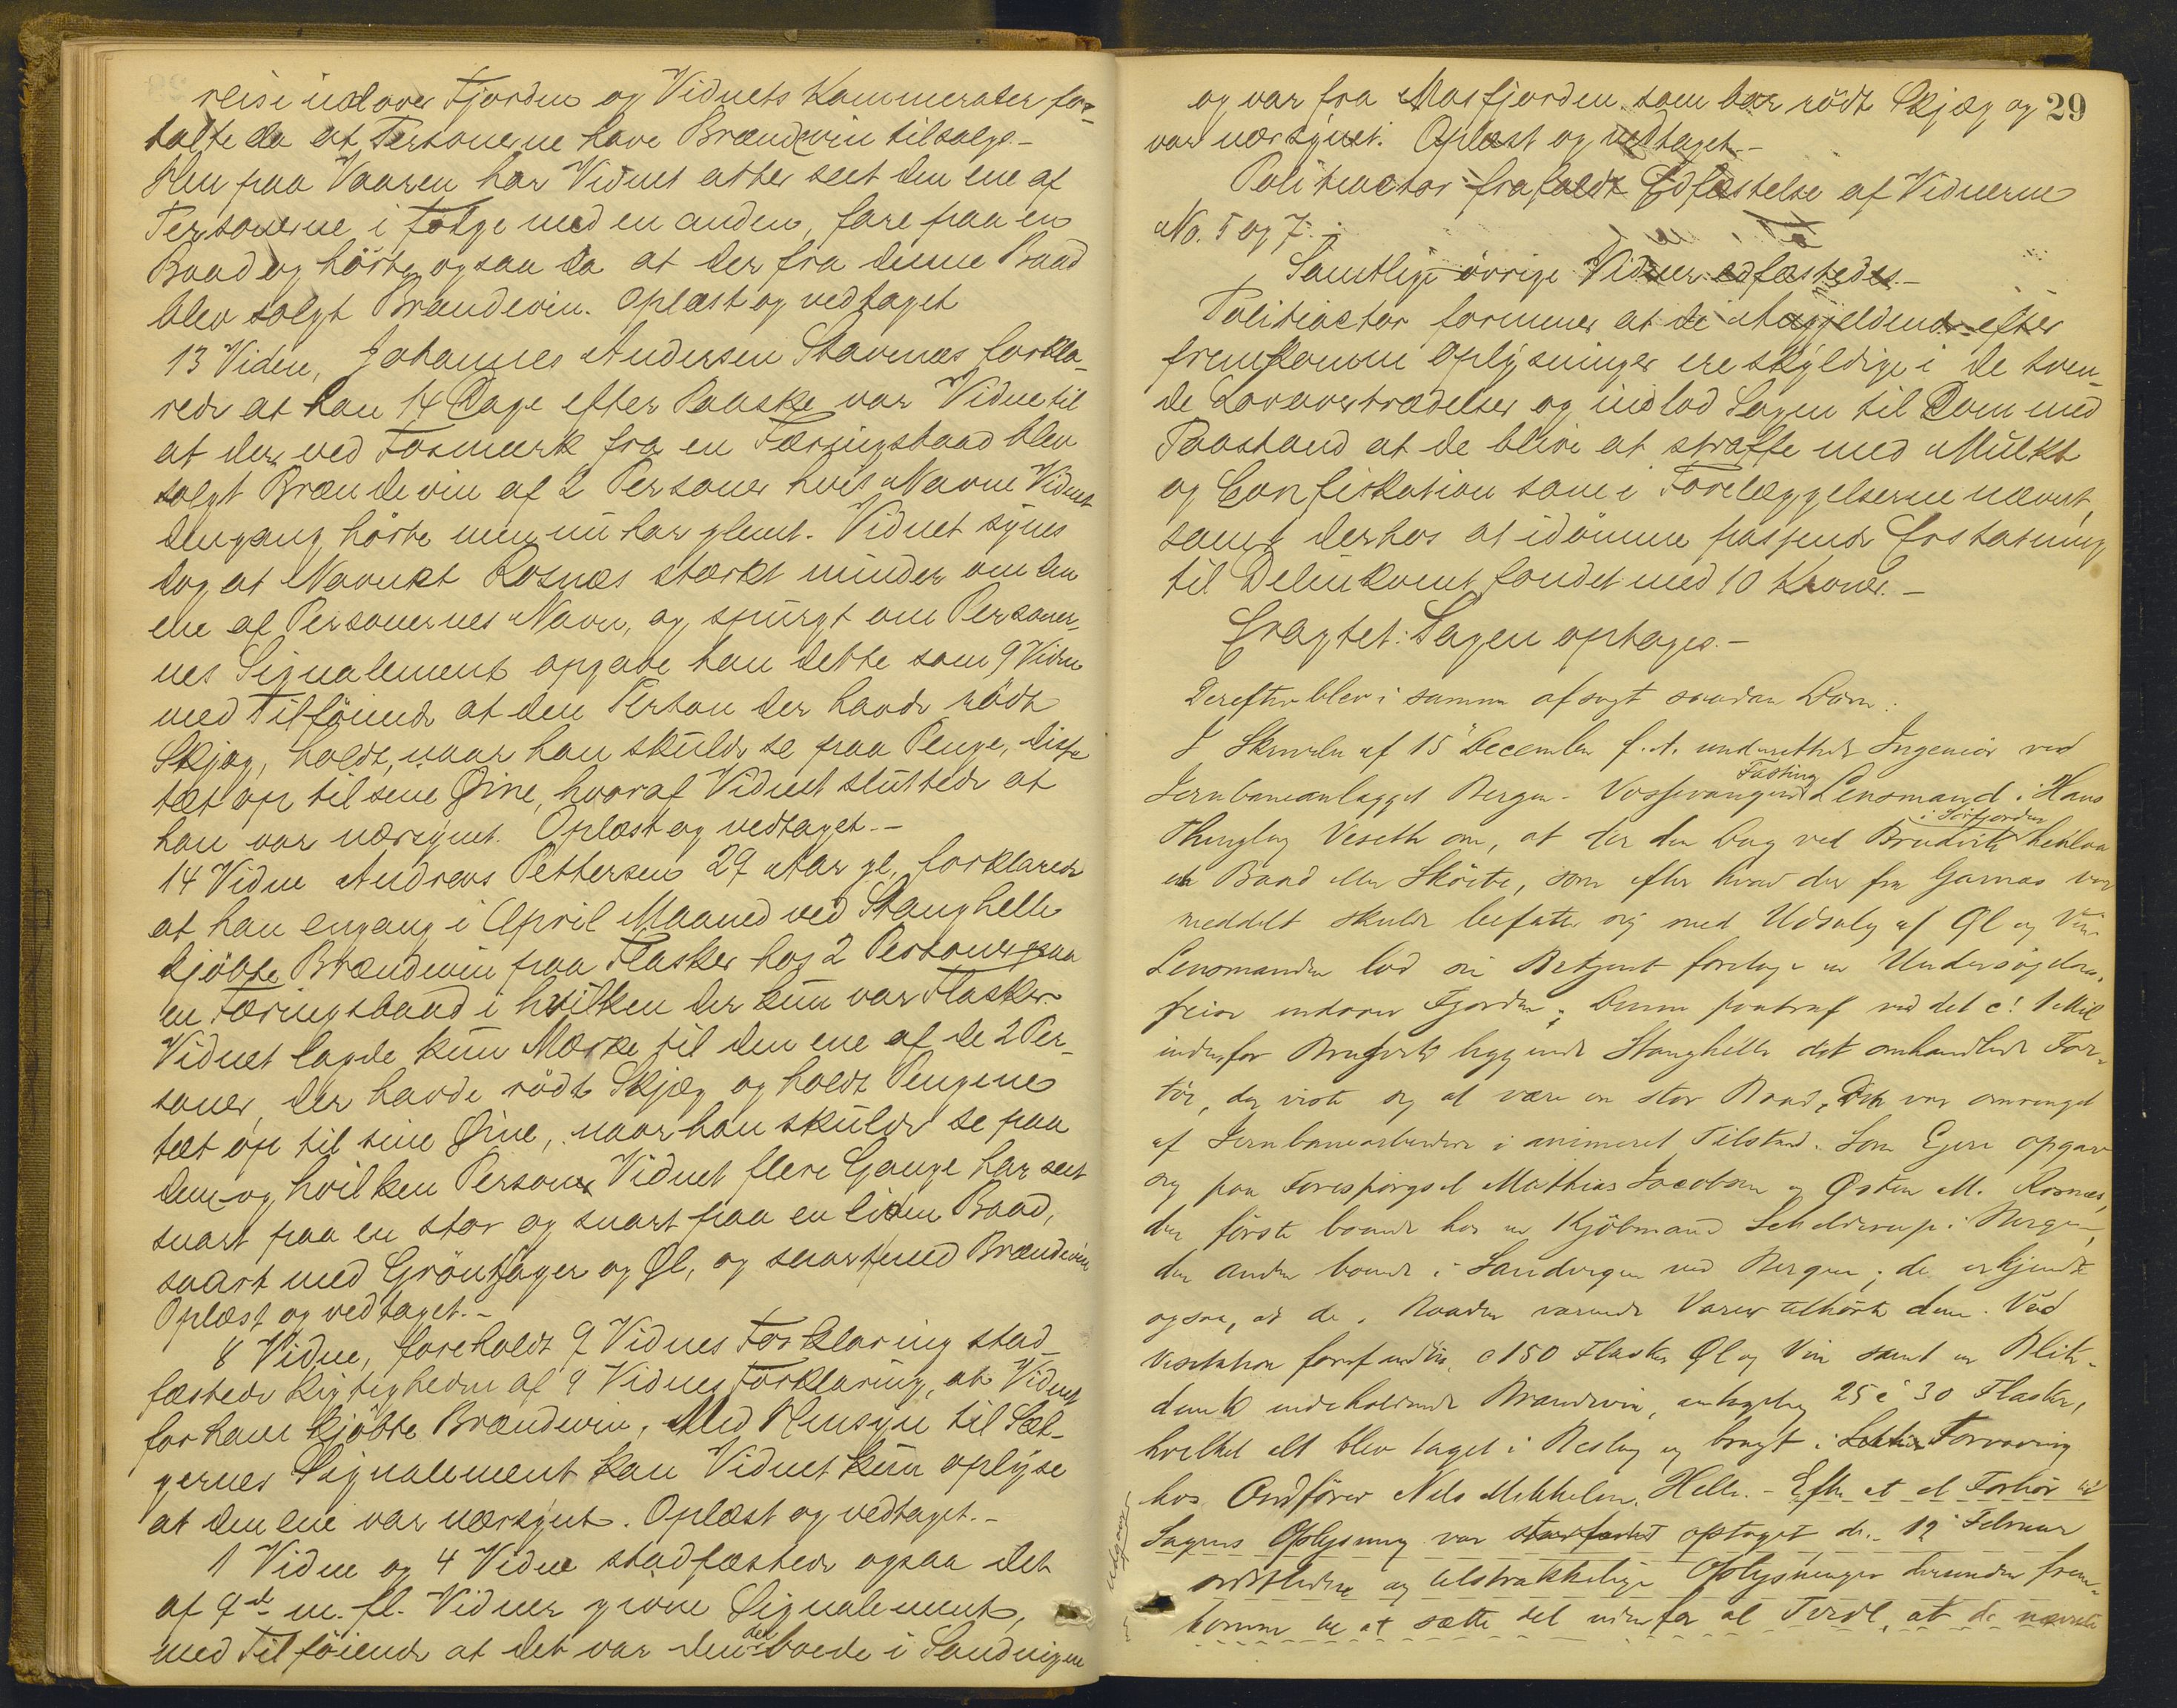 reise udover Fjorden og Vidnets Kammerater for-
talte da at Personerne have Brændevin tilsalgs.-
Hen paa Vaaren har Vidnet atter seet den ene af
Personerne i følge med en anden, fare paa en
Baad og hørte ogsaa da at der fra denne Baad
blev solgt Brændevin. Oplæst og vedtaget
13 Vidne, Johannes Andersen Stavenæs forkla-
rede at han 14 Dage efter Paaske var Vidne til
at der ved Fosmærk fra en Færingsbaad blev
solgt Brændevin af 2 Personer hvis Navne Vidnet
dengang hørte men nu har glemt. Vidnet synes
dog at Navnet Rosnæs stærkt minder om den
ene af Personernes Navn, og spurgt om Personer-
nes Signalement opgave han dette som 9 Vidne
med Tilføiende at den Person der havde rødt
Skjæg, holdt, naar han skulde se paa Penge, disse
tæt op til sine Øine, hvoraf Vidnet sluttede at
han var nærsynet. Oplæst og vedtaget.-
14 Vidne Andreas Pettersen 29 Aar gl, forklarede
at han engang i April Maaned ved Stanghelle
kjøbte Brændevin paa Flasker hos 2 Personer paa
en Færingsbaad i hvilken der kun var Flasker
Vidnet lagde kun Mærke til den ene af de 2 Per-
soner, der havde rødt Skjæg og holdt Pengene
tæt op til sine Øine, naar han skulde se paa
dem og hvilken Person Vidnet flere Gange har seet
snart paa en stor og snart paa en liden Baad,
snart med Grøntsager og Øl, og snart med Brændevin
Oplæst og vedtaget.-
8 Vidne, foreholdt 9 Vidnes Forklaring stad-
fæstede Rigtigheden af 9 Vidnes Forklaring, at Vidnet
for ham kjøbte Brændevin. Med Hensyn til Sæl-
gernes Signalement kan Vidnet kun oplyse
at den ene var nærsynt. Oplæst og vedtaget.-
1 Vidne og 4 Vidne stadfæstede ogsaa det
af 9de m. fl. Vidner givne Signalement,
med Tilføiende at det var den der boede i Sandvigen
29
og var fra Masfjorden som har rødt Skjæg og
var nærsynet. Oplæst og vedtaget.-
Politiactor frafaldt Edfæstelse af Vidnerne
No. 5 og 7.
Samtlige øvrige Vidner edfæstedes.-
Politiactor formener at de Angjeldende efter
fremkomne Oplysninger ere skyldige i de tven-
de Lovovertrædelser og indlod Sagen til Dom med
Paastand at de blive at straffe med Mulkt
og Confiskation som i Forelæggelserne nævnt,
samt derhos at idømme passende Erstatning
til Delinkventfondet med 10 Kroner.-
Eragtet: Sagen optages.-
Derefter blev i samme afsagt saadan Dom:
I Skrivelse af 15 December f. A. underrettede Ingeniør ved
Jernbaneanlægget Bergen-Vossevangen Fasting Lensmand i Haus
Thinglag Veseth om, at der den Dag ved Bruvik i Sørfjorden henlaa
en Baad eller Skøite, som efter hvad der fra Garnæs var
meddelt skulde befatte sig med Udsalg af Øl og Vin
Lensmanden lod sin Betjent foretage en Undersøgelses-
reise indover Fjorden; Denne paatraf ved det c! 1 Mil
indenfor Bruvik liggende Stanghelle det omhandlede Far-
tøi, der viste sig at være en stor Baad, Den var omringet
af Jernbanearbeidere i animeret Tilstand. Som Eiere opgav
sig paa Forespørgsel Mathias Jacobsen og Østen M. Rosnæs,
den første boende hos en Kjøbmand Schelderup i Bergen,
den anden boende i Sandvigen ved Bergen; de erkjendte
ogsaa, at de i Baaden værende Varer tilhørte dem. Ved
Visitation forefandtes c 150 Flasker Øl og Vin samt en Blik-
dunk indeholdende Brændevin, antagelig 25 à 30 Flasker,
hvilket alt blev taget i Beslag og bragt i Forvaring
hos Ordfører Nils Mikkelsen Helle. - Efter at et Forhør til
Sagens Oplysning var optaget den 12 Februar
og tilstrækkelige Oplysninger derunder frem-
komne til at sætte det udenfor al Tvivl, at de nævnte
Udgaar